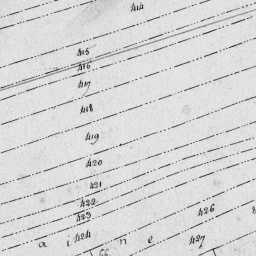 414
415
416
417
418
419
420
421
422
423
426
424
427
a i n e